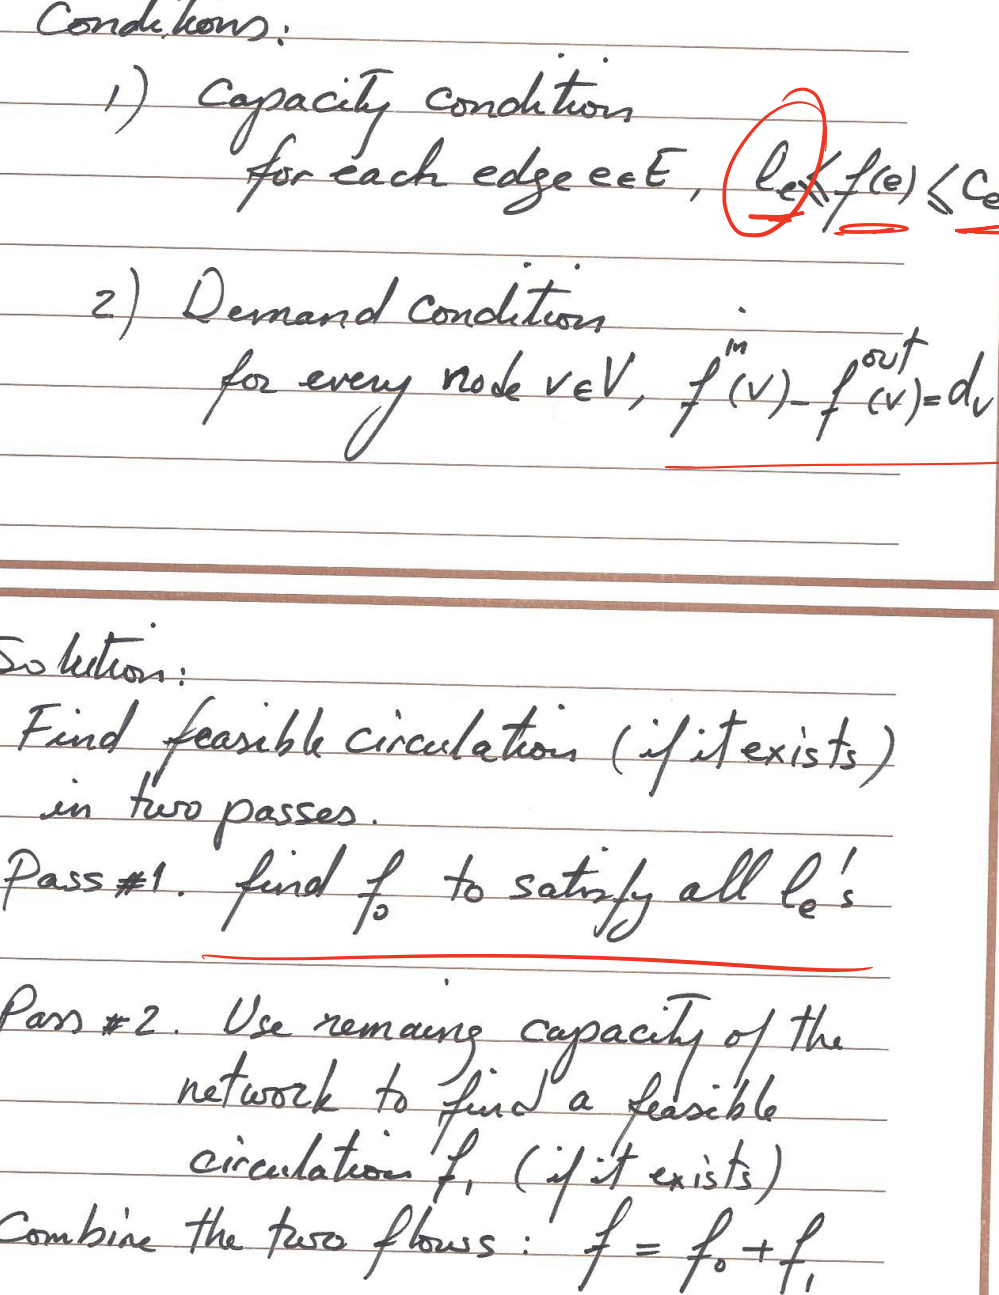 Conditions:
1) Capacity condition
for each edge e∈E, le ≤ f(e) ≤ Ce
2) Demand condition
for every node v∈V, f^in(v) - f^out(v) = dv
Solution:
Find feasible circulation (if it exists)
in two passes.
Pass #1. find f₀ to satisfy all le's
Pass #2. Use remaing capacity of the
network to find a feasible
circulation f₁ (if it exists)
Combine the two flows: f = f₀ + f₁